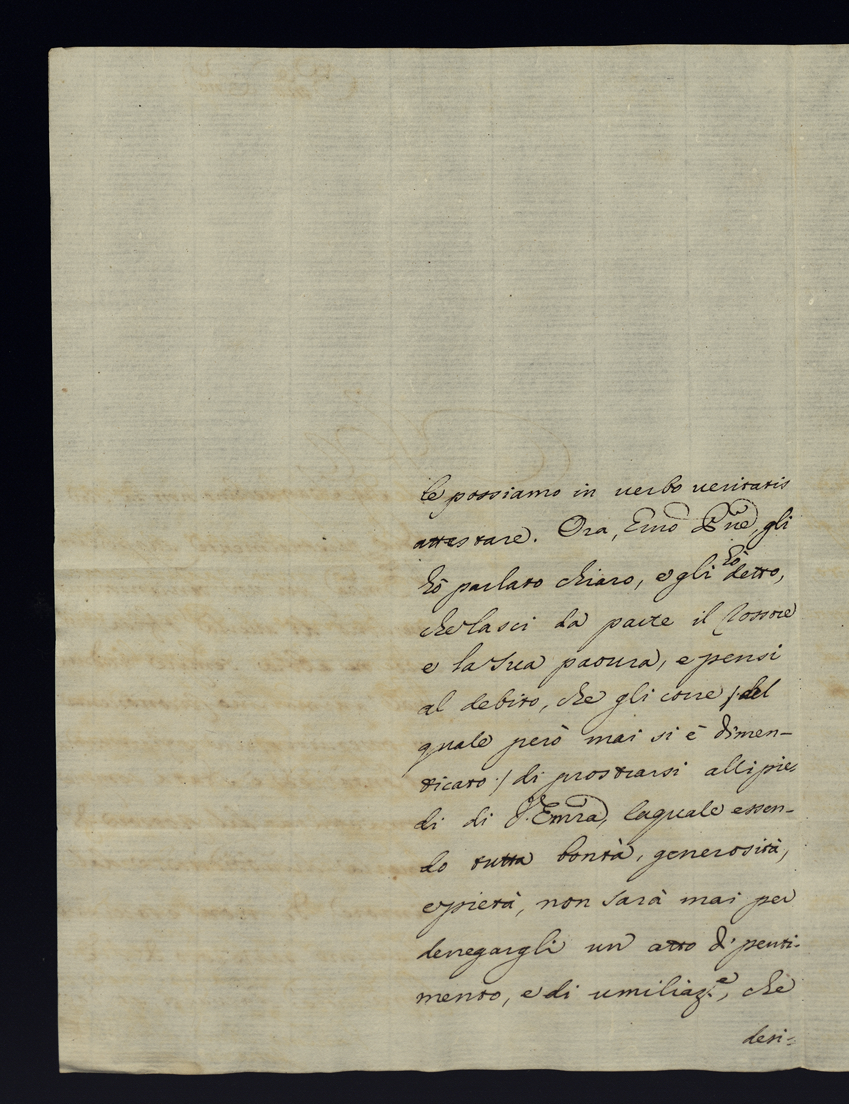 le possiamo in verbo veritatis
attestare. Ora, Emo Pne, gli
hò parlato chiaro, e gli hò detto,
che lasci da parte il rossore
e la sua paoura, e pensi
al debito, che gli corre /del
quale però mai si è dimen-
ticato:/ di prostrarsi alli pie-
di di V. Emza, la quale essen-
do tutta bontà, generosità,
e pietà, non sarà mai per
denegargli un atto di penti-
mento, e di umiliaz.e, che
desi-